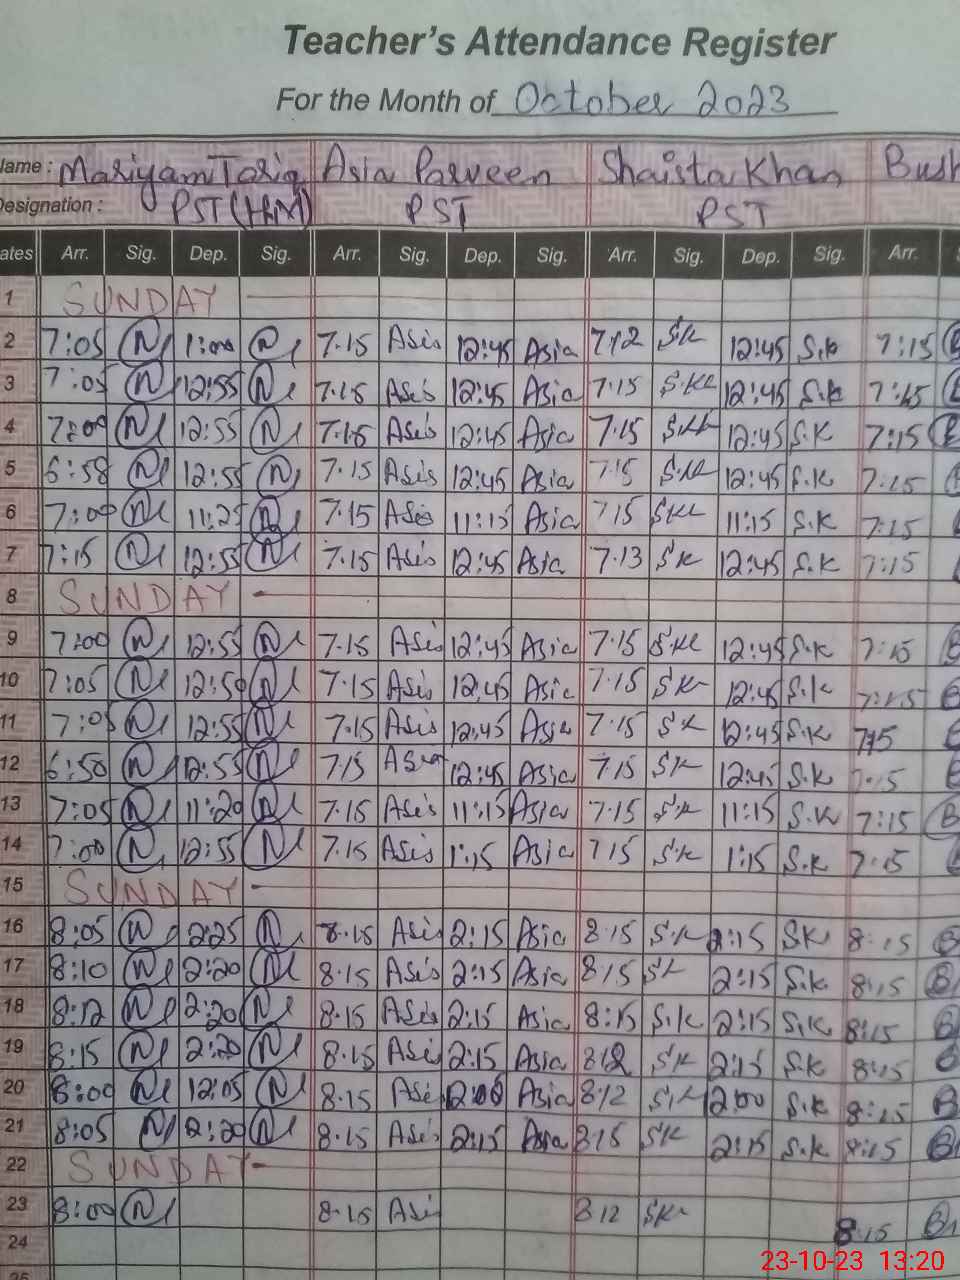 Teacher's Attendance Register
For the Month of October 2023
Name : Mariyam Tariq Asia Parveen Shaista Khan Bush
Designation : PST (HM) PST PST
ates Arr. Sig. Dep. Sig. Arr. Sig. Dep. Sig. Arr. Sig. Dep. Sig. Arr. S
1 SUNDAY
2 7:05 1:00 7.15 Asia 12:45 Asia 7:12 S.K 12:45 S.K 7:15
3 7:05 12:55 7.15 Asia 12:45 Asia 7.15 S.K 12:45 S.K 7:15
4 7:00 12:55 7.15 Asia 12:45 Asia 7.15 S.K 12:45 S.K 7:15
5 6:58 12:55 7.15 Asia 12:45 Asia 7:15 S.K 12:45 S.K 7:15
6 7:00 11:25 7.15 Asia 11:15 Asia 7 15 S.K 11:15 S.K 7:15
7 7:15 12:55 7.15 Asia 12:45 Asia 7.13 S.K 12:45 S.K 7:15
8 SUNDAY
9 7:00 12:55 7.15 Asia 12:45 Asia 7.15 S.K 12:45 S.K 7:15
10 7:05 12:50 7.15 Asia 12:45 Asia 7.15 S.K 12:45 S.K 7:15
11 7:05 12:55 7.15 Asia 12:45 Asia 7.15 S.K 12:45 S.K 7:15
12 6:50 12:55 7.15 Asia 12:45 Asia 7.15 S.K 12:45 S.K 7:15
13 7:05 11:20 7.15 Asia 11:15 Asia 7.15 S.K 11:15 S.K 7:15
14 7:00 12:55 7.15 Asia 1:15 Asia 7 15 S.K 1:15 S.K 7:15
15 SUNDAY
16 8:05 2:25 8.15 Asia 2:15 Asia 8.15 S.K 2:15 S.K 8:15
17 8:10 2:20 8.15 Asia 2:15 Asia 8.15 S.K 2:15 S.K 8:15
18 8:12 2:20 8.15 Asia 2:15 Asia 8:15 S.K 2:15 S.K 8:15
19 8:15 2:20 8.15 Asia 2:15 Asia 8:12 S.K 2:15 S.K 8:15
20 8:00 12:05 8.15 Asia 12:00 Asia 8:12 S.K 12:00 S.K 8:15
21 8:05 2:20 8.15 Asia 2:15 Asia 8:15 S.K 2:15 S.K 8:15
22 SUNDAY
23 8:00 8.15 Asia 8 12 S.K 8:15
24
25
23-10-23 13:20